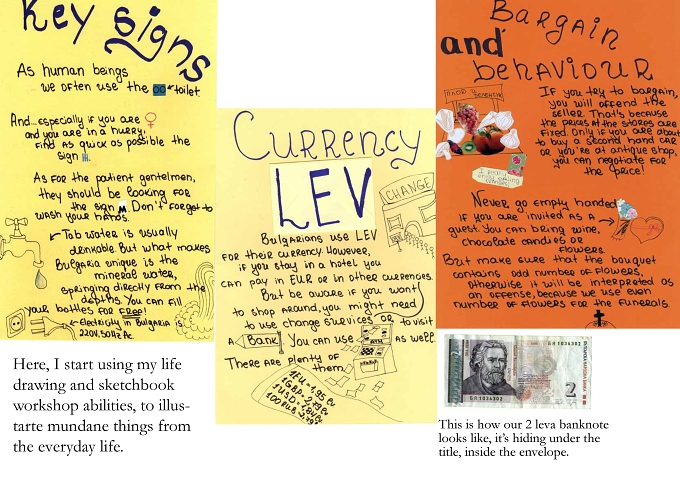 Key Signs
As human beings
we often use the 00 toilet
And...especially if you are
and you are in a hurry,
find as quick as possible the
sign
As for the patient gentelmen,
they should be looking for
the sign M Don't forget to
wash your hands.
Tab water is usually
drinkable. But what makes
Bulgaria unique is the
mineral water,
springing directly from the
depths. You can fill
your bottles for free!
Electricity in Bulgaria is
220V, 50Hz Ac
Here, I start using my life
drawing and sketchbook
workshop abilities, to illus-
tarte mundane things from
the everyday life.
Currency
LEV
CHANGE
Bulgarians use LEV
for their currency. However,
if you stay in a hotel you
can pay in EUR or in other currencies.
But be aware if you want
to shop around, you might need
to use change services or to visit
a Bank! You can use as well.
There are plenty of
them
Bargain
and
behaviour
If you try to bargain,
you will offend the
seller. That's because
the prices at the stores are
fixed. Only if you are about
to buy a second hand car
or you're at antique shop,
you can negotiate for
the price!
Never go empty handed
if you are invited as a
guest. You can bring wine,
chocolate candies or
flowers.
But make sure that the bouquet
contains odd number of flowers,
otherwise it will be interpreted as
an offense, because we use even
number of flowers for the funerals.
2
This is how our 2 leva banknote
looks like, it's hiding under the
title, inside the envelope.